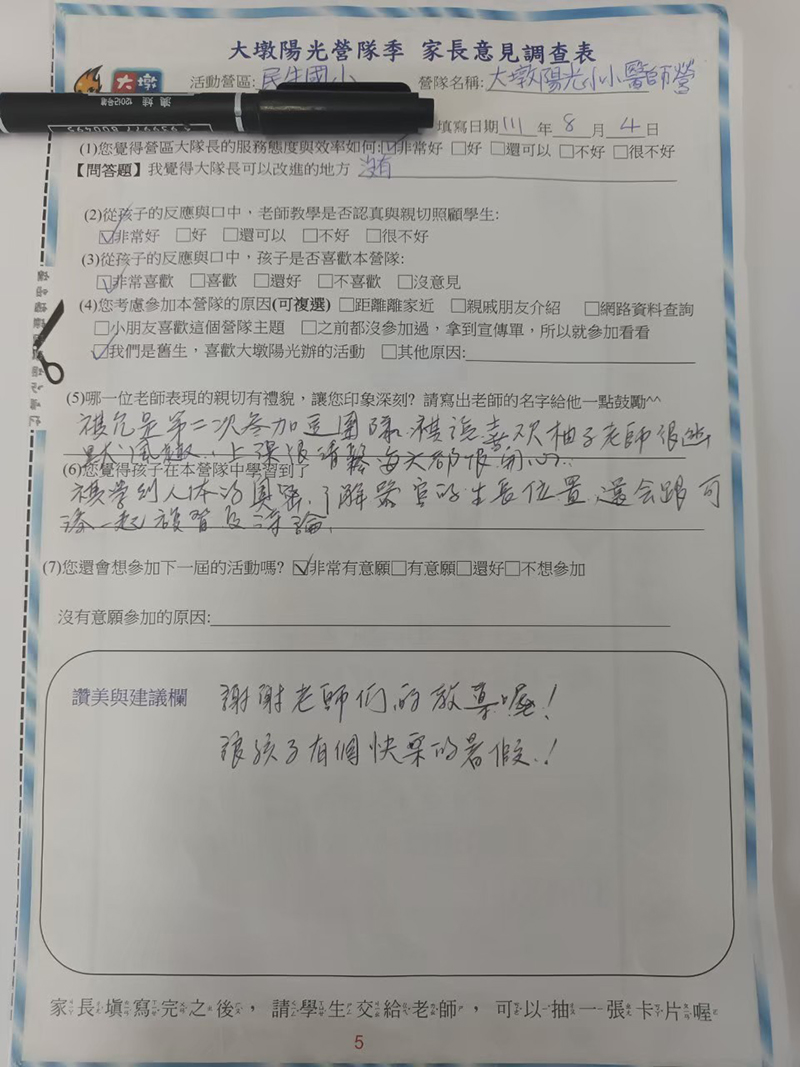 大墩陽光營隊季 家長意見調查表
大墩 活動營區: 民生國小 營隊名稱: 大墩陽光小小醫師營
填寫日期 111 年 8 月 4 日
(1)您覺得營區大隊長的服務態度與效率如何:☑非常好 □好 □還可以 □不好 □很不好
【問答題】我覺得大隊長可以改進的地方 沒有
(2)從孩子的反應與口中，老師教學是否認真與親切照顧學生:
☑非常好 □好 □還可以 □不好 □很不好
(3)從孩子的反應與口中，孩子是否喜歡本營隊:
☑非常喜歡 □喜歡 □還好 □不喜歡 □沒意見
(4)您考慮參加本營隊的原因(可複選) □距離離家近 □親戚朋友介紹 □網路資料查詢
□小朋友喜歡這個營隊主題 □之前都沒參加過，拿到宣傳單，所以就參加看看
☑我們是舊生，喜歡大墩陽光辦的活動 □其他原因:
(5)哪一位老師表現的親切有禮貌，讓您印象深刻? 請寫出老師的名字給他一點鼓勵^^
是第二次參加這團隊 喜欢柚子老師很幽
默風趣，上課很 每天都很開心
(6)您覺得孩子在本營隊中學習到了
學到人体的奧密，了解器官的生長位置，還會跟可
一起複習及討論.
(7)您還會想參加下一屆的活動嗎? ☑非常有意願□有意願□還好□不想參加
沒有意願參加的原因:
讚美與建議欄 謝謝老師們的教導喔!
讓孩子有個快樂的暑假.!
家長填寫完之後，請學生交給老師，可以抽一張卡片喔
5